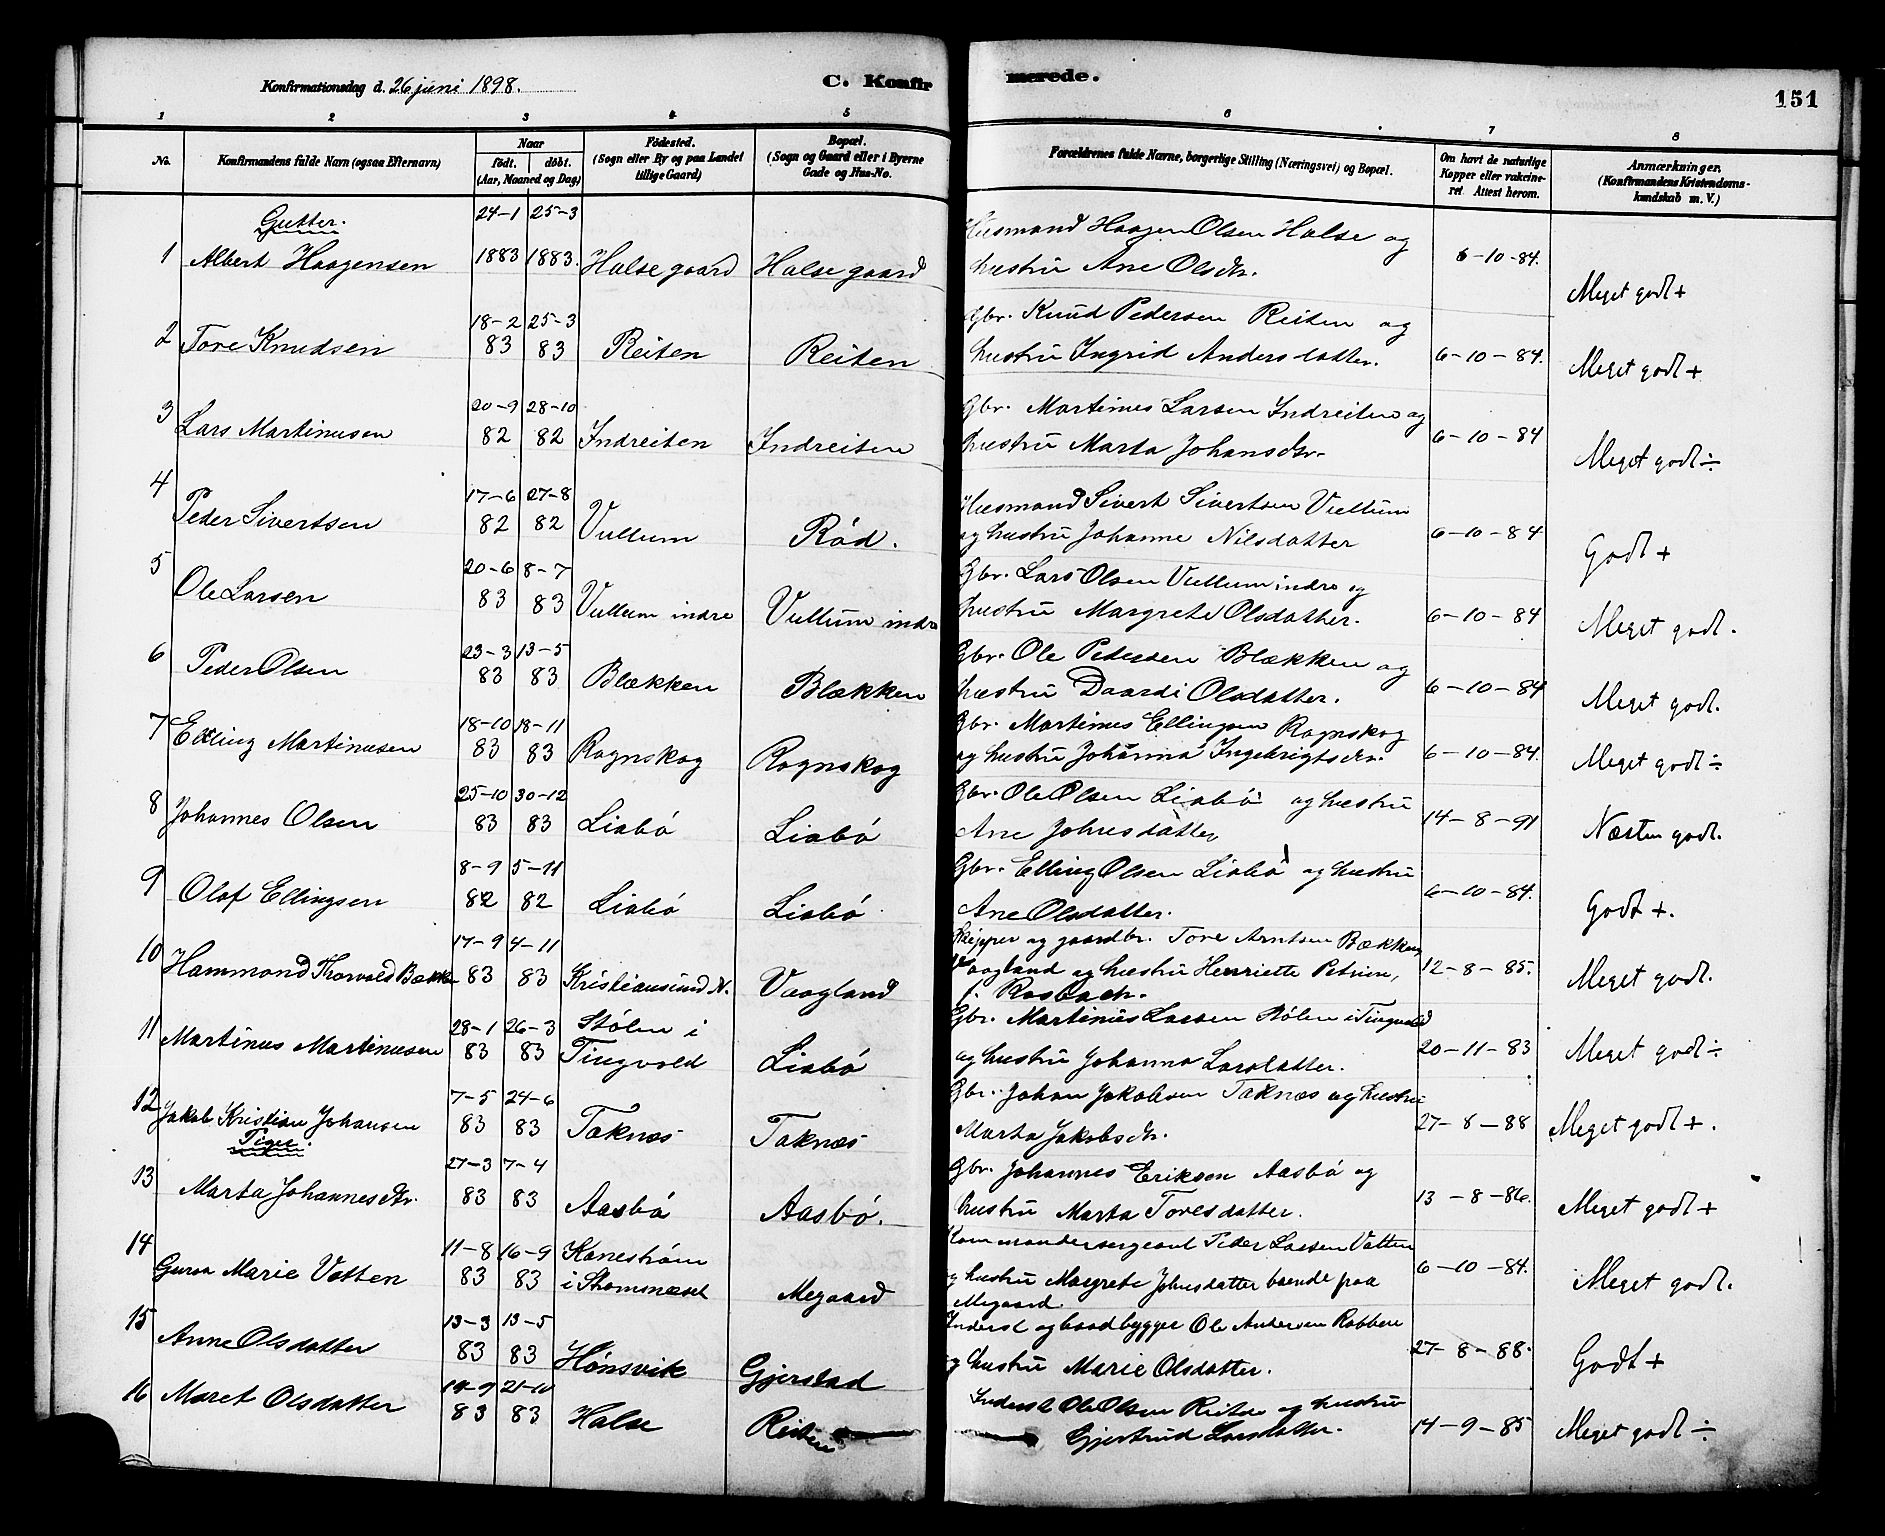 Konfirmationsdag d. 26 juni 1898. C. Konfir merede. 151
1 2 3 4 5 6 7 8
No. Konfirmandens fulde Navn (ogsaa Efternavn) Naar født, døbt. (Aar, Maaned og Dag) Fødested. (Sogn eller By og paa Landet tillige Gaard) Bopæl. (Sogn og Gaard eller i Byerne Gade og Hus-No. Forældrenes fulde Navne, borgerlige Stilling (Næringsvei) og Bopæl. Om havt de naturlige Kopper eller vakcineret. Attest herom. Anmærkninger. (Konfirmandens Kristendomskundskab m. V.)
Gutter.
1 Albert Haagensen 24-1 1883 25-3 1883. Halse gaard Halse gaard Husmand Haagen Olsen Halse og hustru Ane Olsdtr. 6-10-84. Meget godt +
2 Tore Knudsen 18-2 83 25-3 83 Reiten Reiten Gbr. Knud Pedersen Reiten og hustru Ingrid Andersdatter. 6-10-84. Meget godt +
3 Lars Martinusen 20-9 82 28-10 82 Indreiten Indreiten Gbr. Martinus Larsen Indreiten og hustru Marta Johansdtr. 6-10-84 Meget godt ÷
4 Peder Sivertsen 17-6 82 27-8 82 Vullum Rød. Husmand Sivert Sivertsen Vullum og hustru Johanne Nilsdatter 6-10-84 Godt +
5 Ole Larsen 20-6 83 8-7 83 Vullum indre Vullum indre Gbr. Lars Olsen Vullum indre og hustru Margrete Olsdatter. 6-10-84 Meget godt.
6 Peder Olsen 23-3 83 13-5 83 Blækken Blækken Gbr. Ole Pedersen Blækken og hustru Daardi Olsdatter. 6-10-84 Meget godt.
7 Elling Martinusen 18-10 83 18-11 83 Rognskog Rognskog Gbr. Martinus Ellingsen Rognskog og hustru Johanna Ingebrigtsdtr. 6-10-84. Meget godt ÷
8 Johannes Olsen 25-10 83 30-12 83 Liabø Liabø Gbr. Ole Olsen Liabø og hustru Ane Johnsdatter 14-8-91 Næsten godt.
9 Olaf Ellingsen 8-9 82 5-11 82 Liabø Liabø Gbr. Elling Olsen Liabø og hustru Ane Olsdatter. 6-10-84. Godt +.
10 Hammond Thorvald Bækken 17-9 83 4-11 83 Kristiansund N. Vaagland Skipper og gaardbr. Tore Arntsen Bækken, Vaagland og hustru Henriette Petrine, f. Rosbach. 12-8-85. Meget godt.
11 Martinus Martinusen 28-1 83 26-3 83 Stølen i Tingvold Liabø Gbr. Martinus Larsen Stølen i Tingvold og hustru Johanna Larsdatter. 20-11-83 Meget godt ÷
12 Jakob Kristian Johansen 7-5 83 24-6 83 Taknæs Taknæs Gbr. Johan Jakobsen Taknæs og hustru Marta Jakobsdtr. 27-8-88 Meget godt +.
Piger.
13 Marta Johannesdtr. 27-3 83 7-4 83 Aasbø Aasbø. Gbr. Johannes Eriksen Aasbø og hustru Marta Toresdatter. 13-8-86. Meget godt +
14 Guroa Marie Vatten 11-8 83 16-9 83 Kanestrøm i Strømsneset Megaard Kommandersergeant Peder Larsen Vatten og hustru Margrete Johnsdatter boende paa Megaard. 6-10-84. Meget godt.
15 Anne Olsdatter 13-3 83 13-5 83 Hønsvik Gjerstad Inderst og baadbygger Ole Andersen Rabben og hustru Marie Olsdatter. 27-8-88. Godt +
16 Maret Olsdatter 19-9 83 21-10 83 Halse Reiten Inderst Ole Olsen Reiten og hustru Gjertrud Larsdatter. 14-9-85 Meget godt ÷